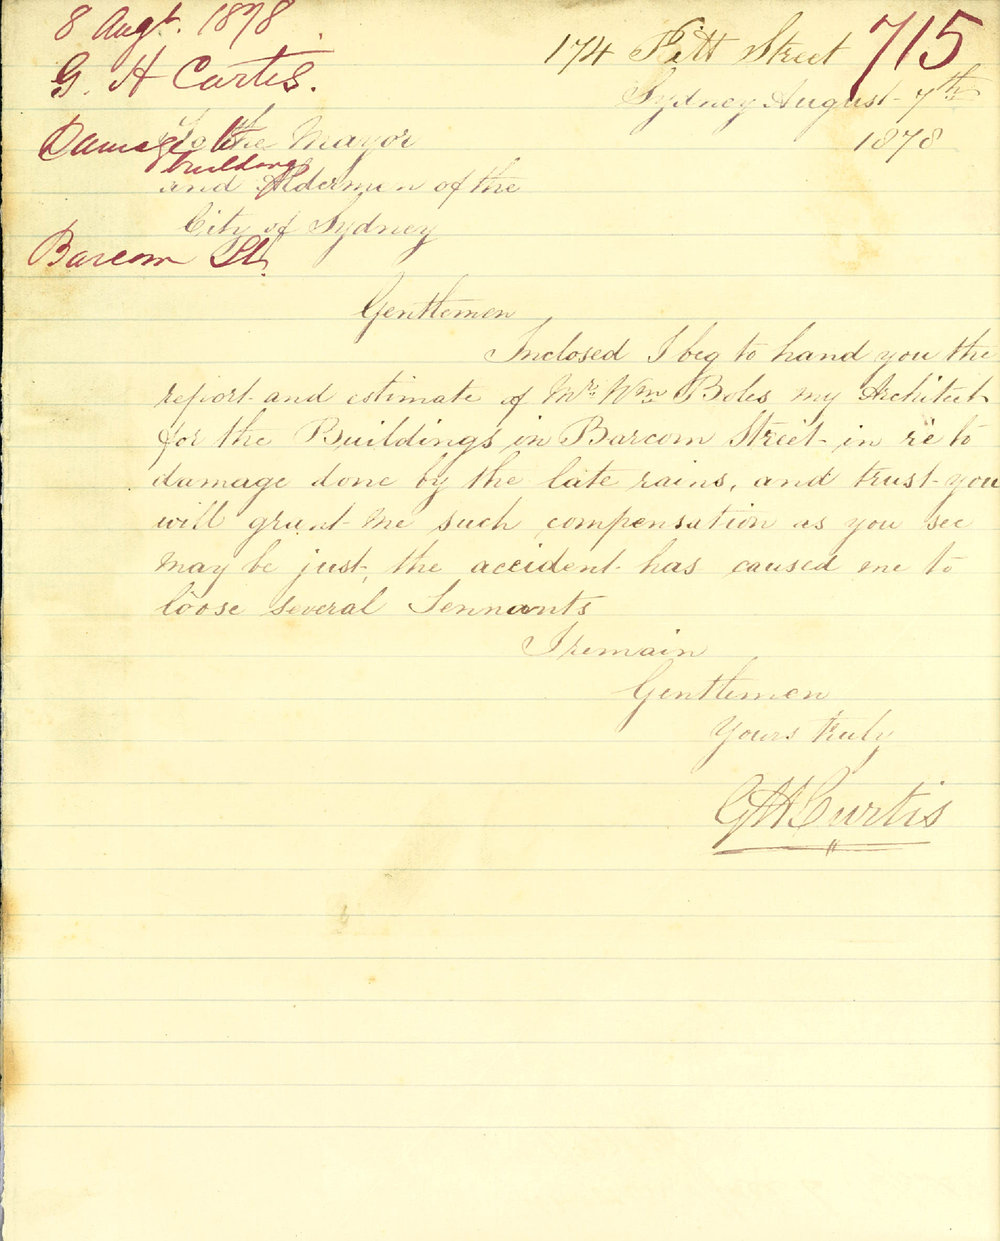 8 Augt. 1878.
G. H Curtis.
Damage to
buildings
Barcom St.
715
174 Pitt Street
Sydney August 7th
1878
To the Mayor
and Aldermen of the
City of Sydney
Gentlemen
Inclosed I beg to hand you the
report and estimate of Mr. Wm Boles my Architect
for the Buildings in Barcom Street in re to
damage done by the late rains, and trust you
will grant me such compensation as you see
may be just, the accident has caused me to
loose several Tennants
I remain
Gentlemen
Yours truly
G H Curtis